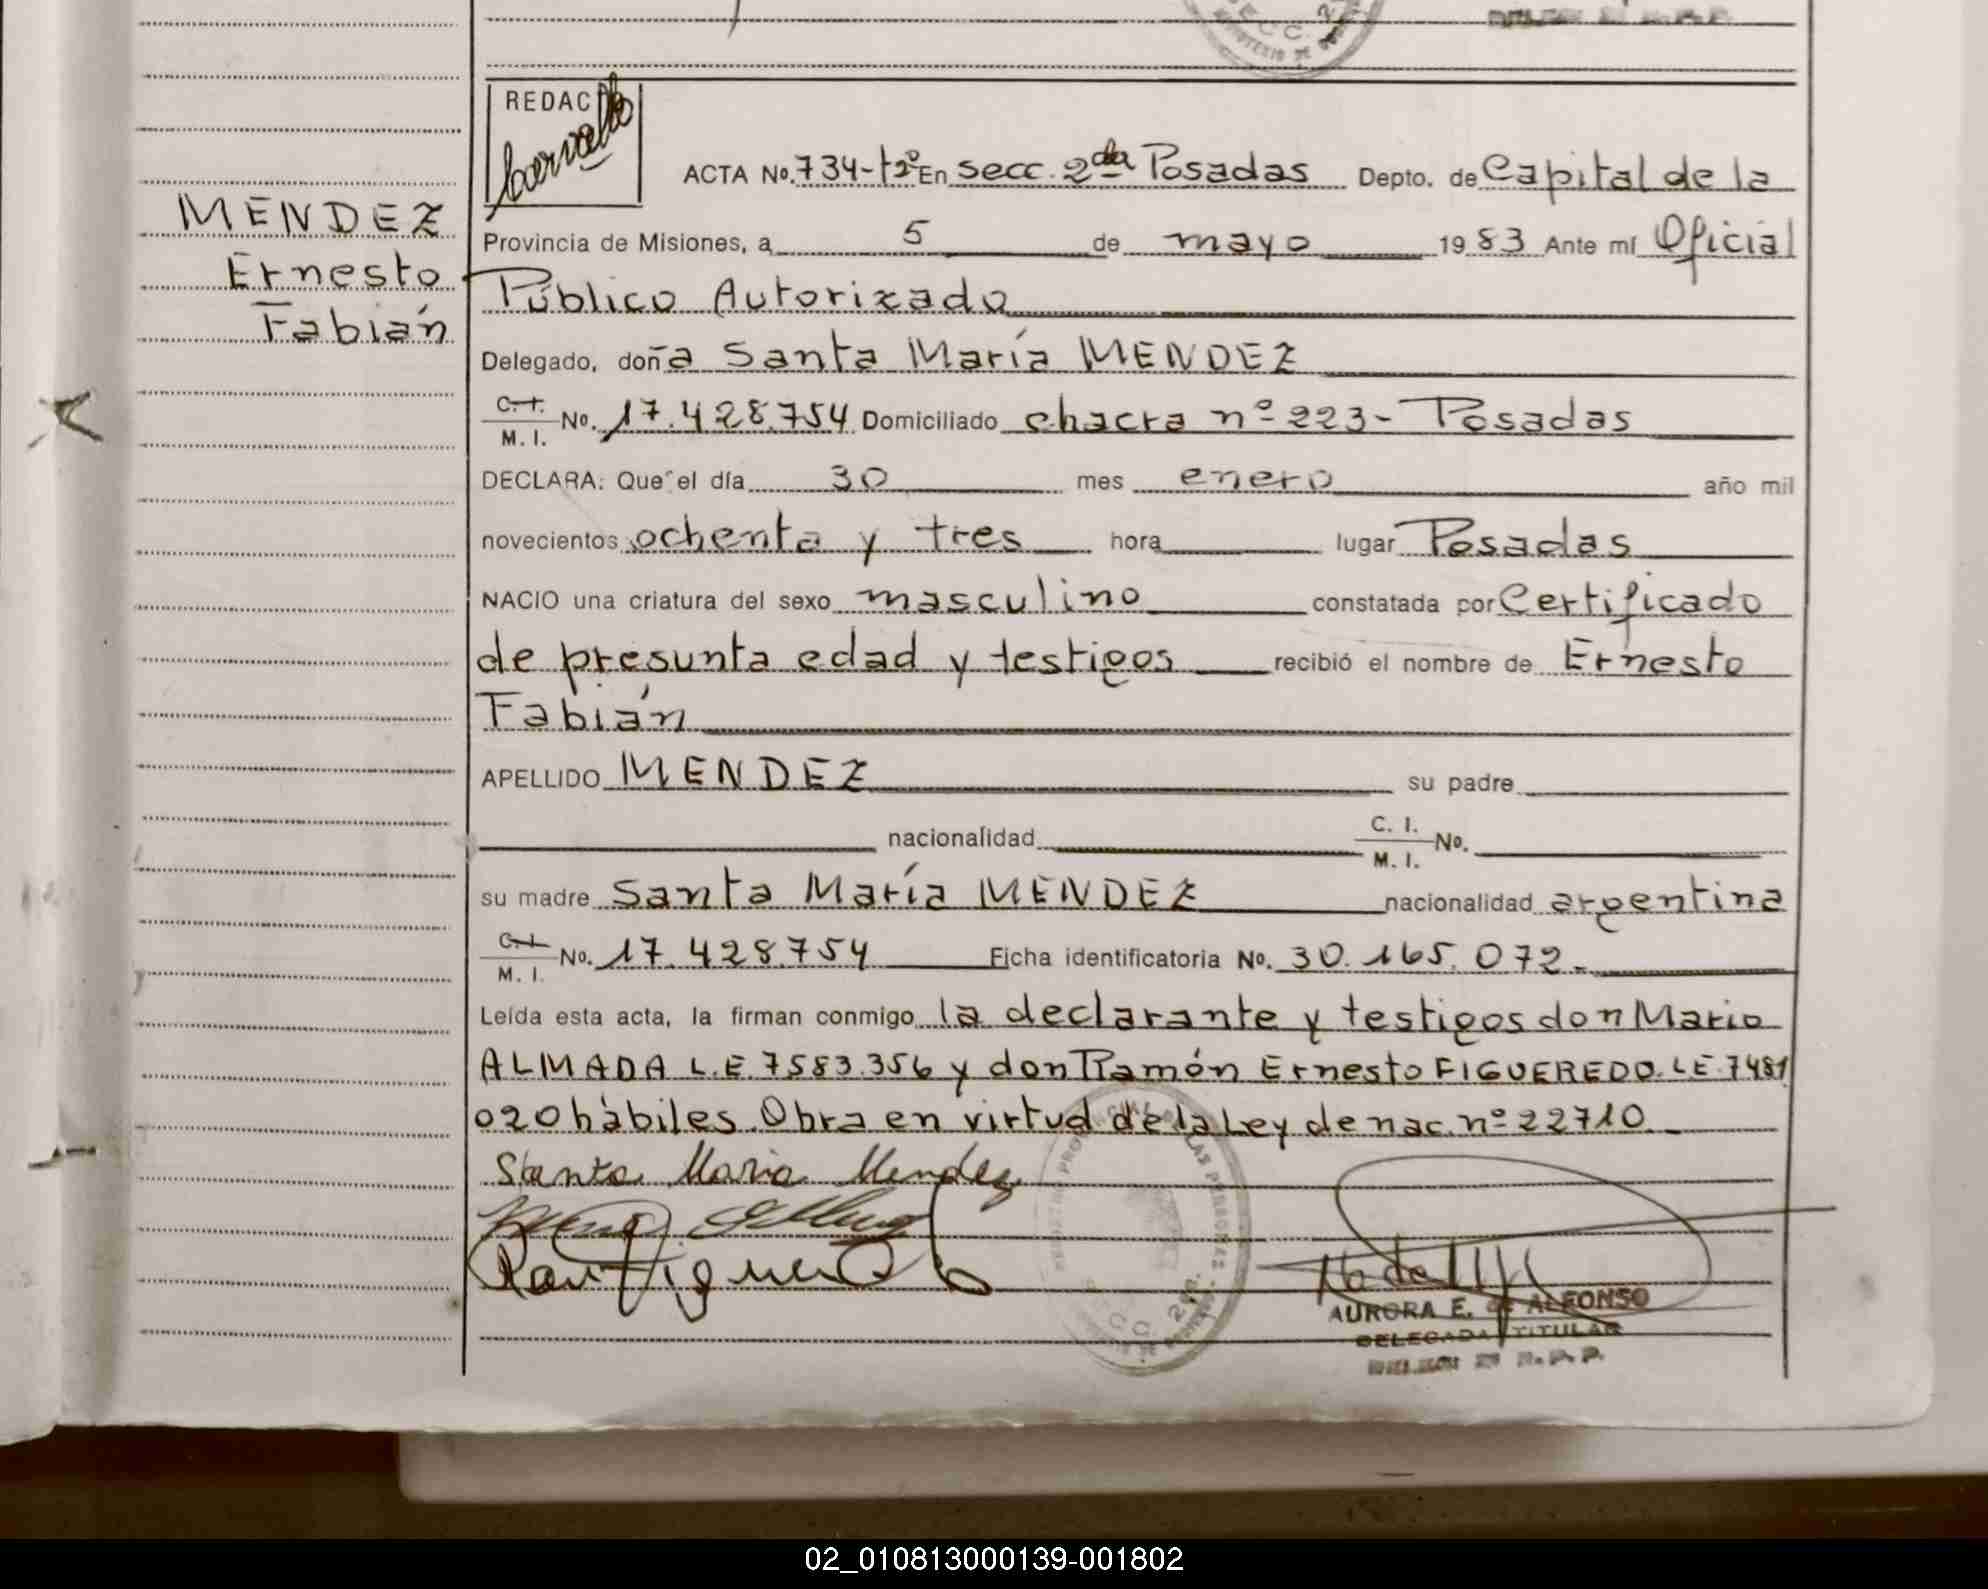 REDAC
ACTA No. 734-tº2º En secc. 2da Posadas Depto. de Capital de la
MENDEZ
Ernesto
Fabián
Provincia de Misiones, a 5 de mayo 1983 Ante mí Oficial
Público Autorizado
Delegado, doña Santa María MENDEZ
C.I. M.I. No. 17.428.754 Domiciliado chacra nº 223- Posadas
DECLARA: Que el día 30 mes enero año mil
novecientos ochenta y tres hora lugar Posadas
NACIO una criatura del sexo masculino constatada por Certificado
de presunta edad y testigos recibió el nombre de Ernesto
Fabián
APELLIDO MENDEZ su padre
nacionalidad C. I. M. I. No.
su madre Santa María MENDEZ nacionalidad argentina
C.I. M. I. No. 17.428.754 Ficha identificatoria No. 30.165.072.-
Leída esta acta, la firman conmigo la declarante y testigos don Mario
ALMADA L.E. 7583.356 y don Ramón Ernesto FIGUEREDO. LE. 7481
020 hábiles. Obra en virtud de la Ley de nac. nº 22710
Santa Maria Mendez
AURORA E. de ALFONSO
DELEGADA TITULAR
02_010813000139-001802